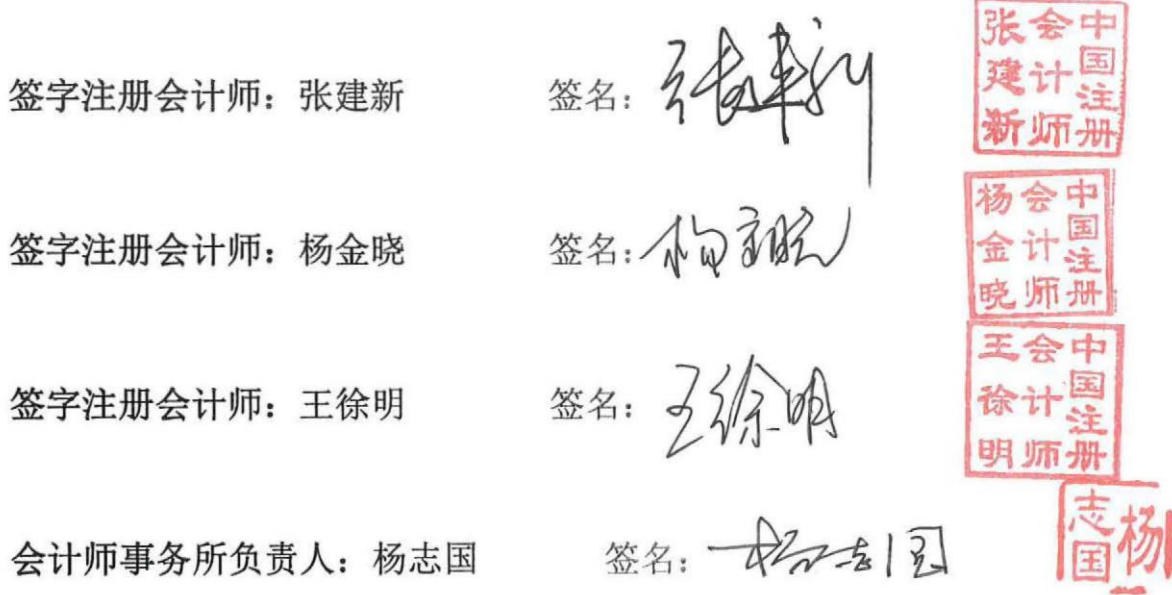 签字注册会计师：张建新 签名：张建新
中国注册会计师张建新
签字注册会计师：杨金晓 签名：杨金晓
中国注册会计师杨金晓
签字注册会计师：王徐明 签名：王徐明
中国注册会计师王徐明
会计师事务所负责人：杨志国 签名：杨志国
杨志国